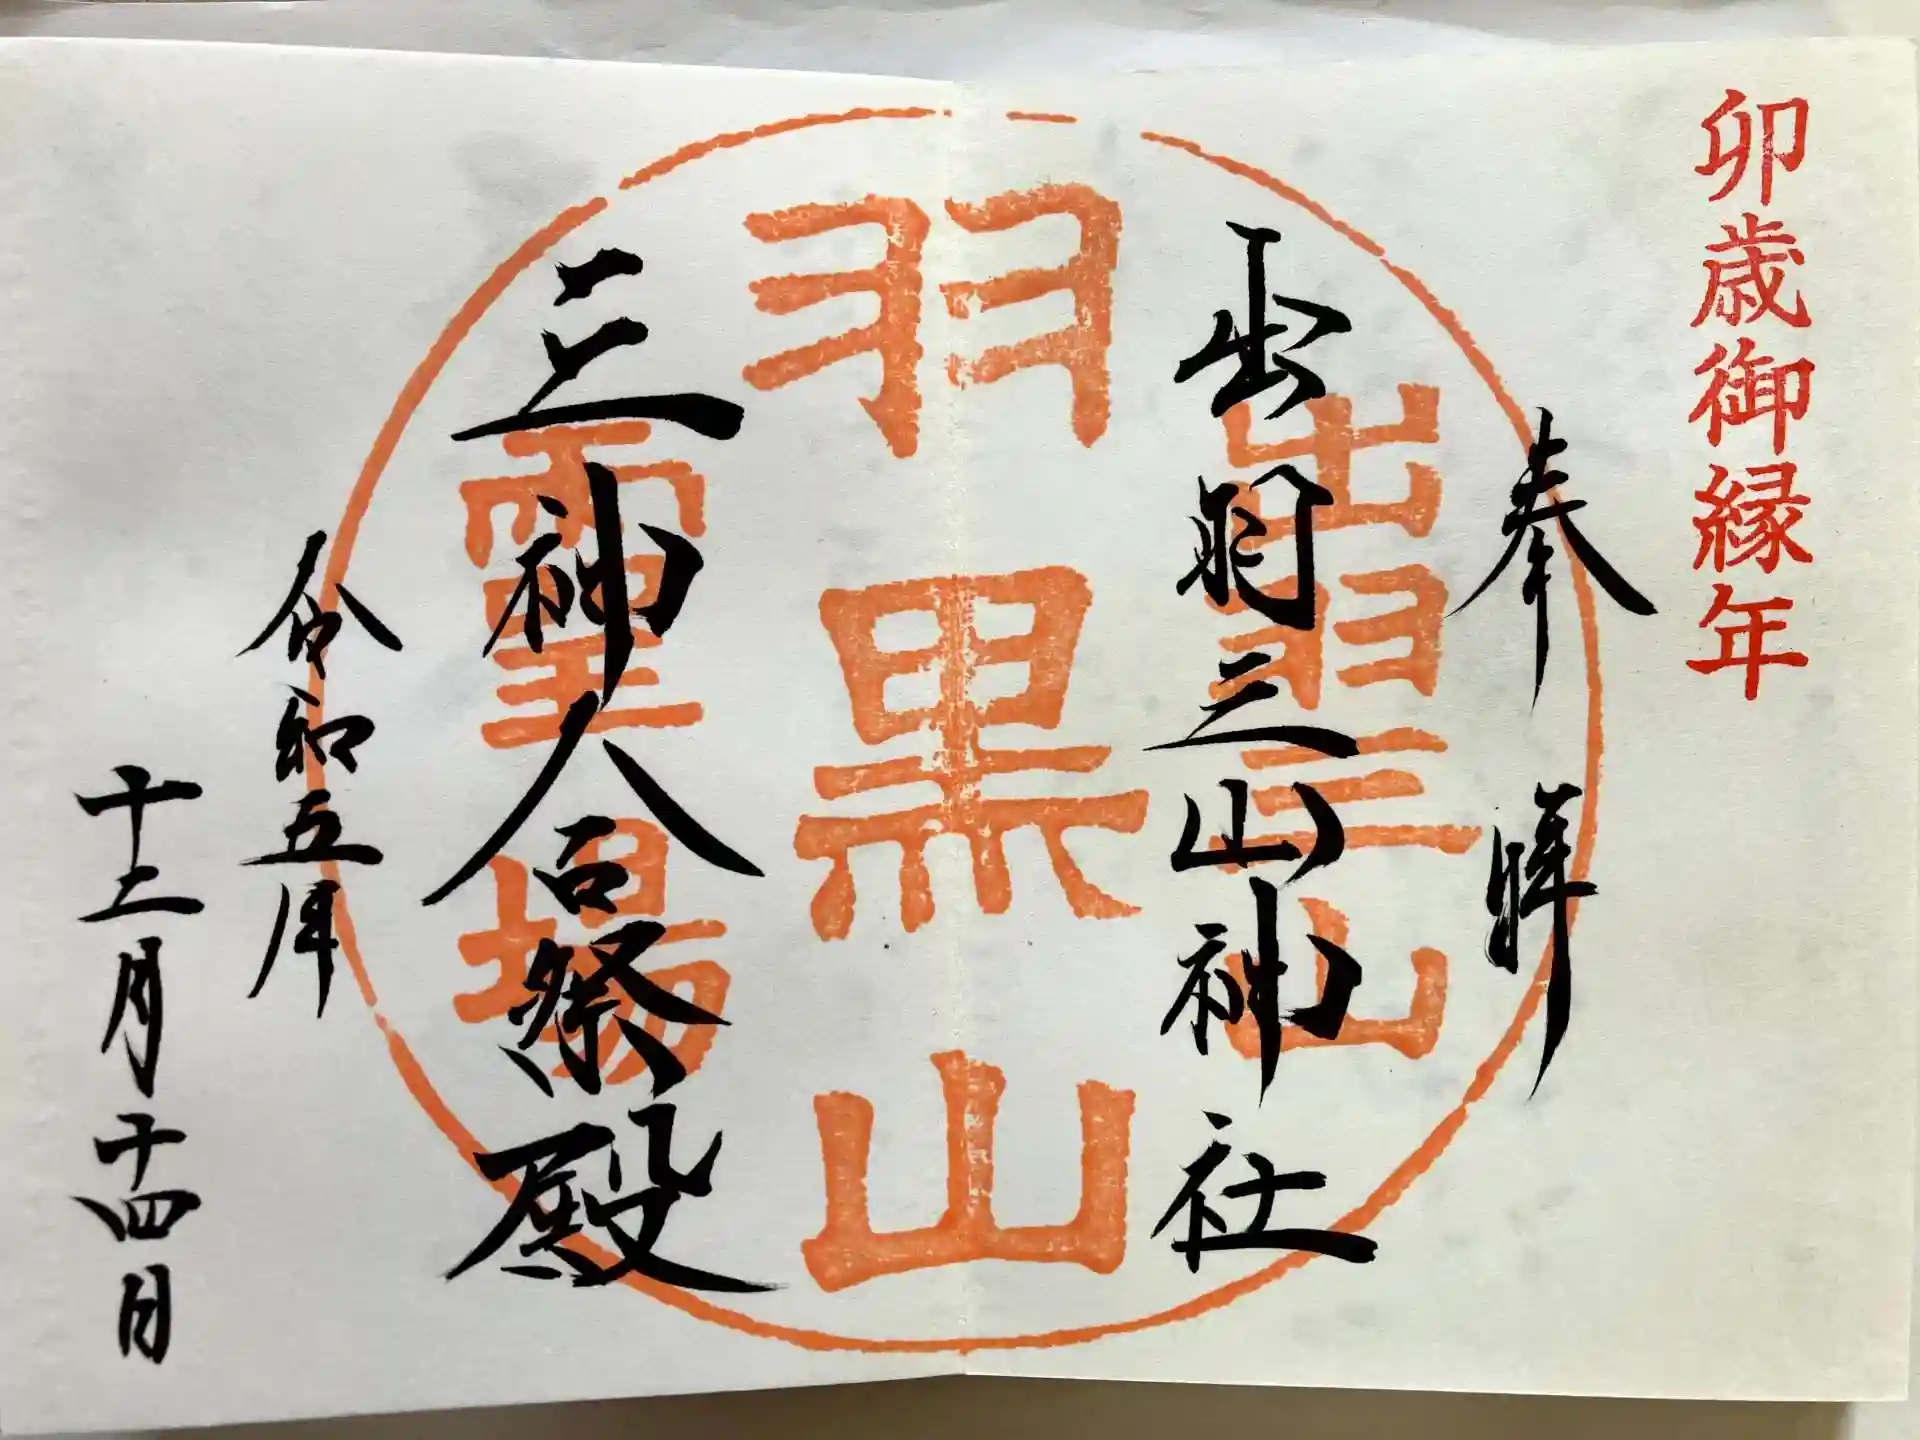 卯歳御縁年
奉拝
出羽三山神社
出羽三山
羽黒山
霊場
三神合祭殿
令和五年
十二月十四日